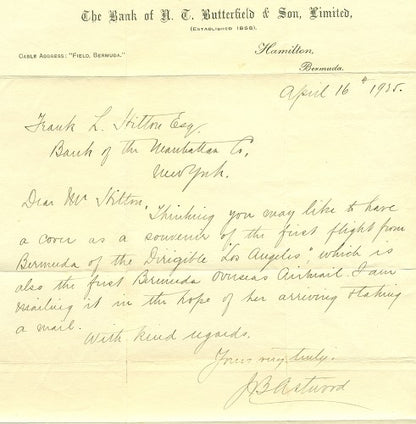 The Bank of N. T. Butterfield & Son, Limited,
(ESTABLISHED 1858).
CABLE ADDRESS: "FIELD, BERMUDA."
Hamilton,
Bermuda.
April 16th 1925.
Frank L. Hilton Esq.
Bank of the Manhattan Co.
New York.
Dear Mr Hilton,
Thinking you may like to have
a cover as a souvenir of the first flight from
Bermuda of the Dirigible "Los Angeles", which is
also the first Bermuda overseas Airmail. I am
mailing it in the hope of her arriving & taking
a mail.
With kind regards.
Yours very truly.
J B Astwood